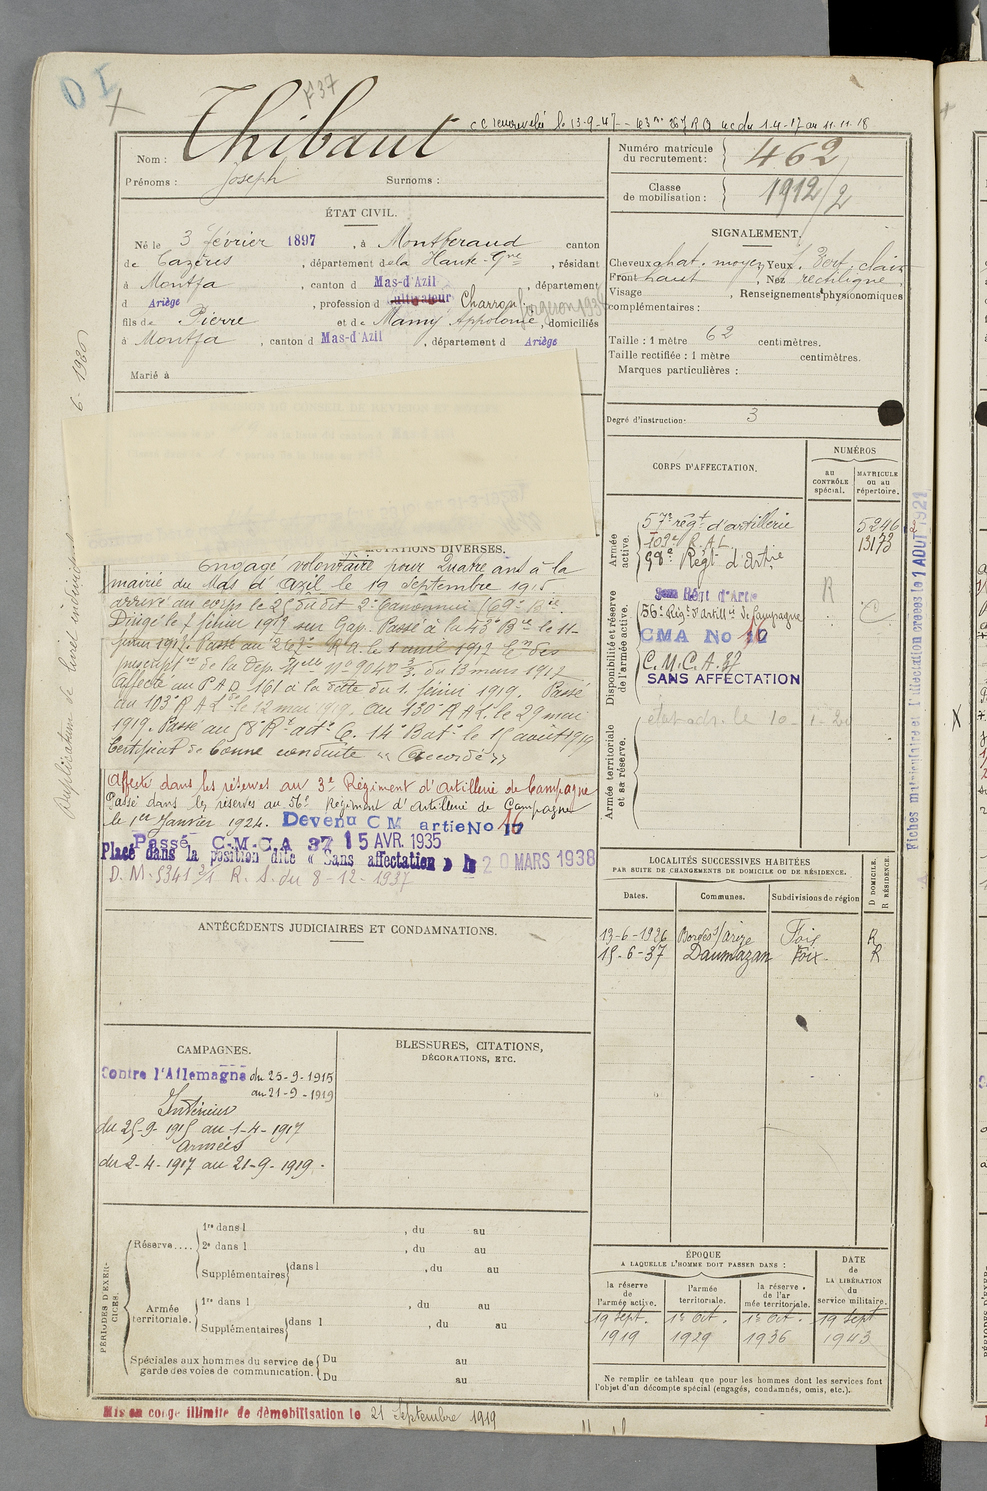 OI
F37
Thibaut
CC renouvelée le 13-9-47 -- 63me 267 RA ucdu 1-4-17 au 11-11-18
Nom :
Prénoms : Joseph Surnoms :
Numéro matricule du recrutement : 462
Classe de mobilisation : 1912/2
ÉTAT CIVIL.
Né le 3 février 1897, à Montberaud canton
de Cazères, département de la Haute-Gne, résidant
à Montfa, canton d Mas-d'Azil, département
d Ariège, profession d cultivateur Charron forgeron 193
fils de Pierre et de Mamy Appolonie, domiciliés
à Montfa, canton d Mas-d'Azil, département d Ariège
Marié à
SIGNALEMENT.
Cheveux chat. moyen Yeux Vert clair
Front haut, Nez rectiligne
Visage, Renseignements physionomiques
complémentaires :
Taille : 1 mètre 62 centimètres.
Taille rectifiée : 1 mètre centimètres.
Marques particulières :
Degré d'instruction : 3
CORPS D'AFFECTATION.
NUMÉROS
au CONTRÔLE spécial.
MATRICULE ou au répertoire.
Armée active.
57e régt d'artillerie 5246
109e R.A.L. 13173
98e Régt d'Artie
Disponibilité et réserve de l'armée active.
Régt d'Artie R
(56e Régt d'Artillie de Campagne C
CMA No 16
C.M.C.A. 37
SANS AFFECTATION
Armée territoriale et sa réserve.
état adr. le 10-1-20
MUTATIONS DIVERSES.
Engagé volontaire pour quatre ans à la
mairie du Mas d'Azil le 19 Septembre 1915
arrivé au corps le 25 dudit 2e Canonnier (69e Bie.
Dirigé le 7 février 1917 sur Gap. Passé à la 43e Bie le 11-
1917. Passé au 267e RA le 1 avril 1917 En des
prescriptns de la Dép. Mlle No 9040 3/3 du 13 mars 1917
Affecté au P A D 161 à la date du 1. février 1919. Passé
au 103e R A L le 12 mai 1919. Au 130e R A L. le 29 mai
1919. Passé au 58 Rt art. C. 14e Bat. le 15 août 1919
Certificat de bonne conduite « Accordé »
Affecté dans les réserves au 3e Régiment d'artillerie de Campagne
Passé dans les réserves au 56e Régiment d'Artillerie de Campagne
le 1er Janvier 1924. Devenu C M artie No 16
Passé C.M.C.A 37 15 AVR. 1935
Placé dans la position dite « Sans affectation » le 20 MARS 1938
D. M. 5341 3/1 R. S. du 8-12-1937
ANTÉCÉDENTS JUDICIAIRES ET CONDAMNATIONS.
LOCALITÉS SUCCESSIVES HABITÉES
PAR SUITE DE CHANGEMENTS DE DOMICILE OU DE RÉSIDENCE.
Dates. Communes. Subdivisions de région D DOMICILE. R RÉSIDENCE.
13-6-1926 Bordes s/ Arize Foix R
15-6-37 Daumazan Foix R
CAMPAGNES.
Contre l'Allemagne du 25-9-1915
au 21-9-1919
Intérieur
du 25-9-1915 au 1-4-1917
Armées
du 2-4-1917 au 21-9-1919.
BLESSURES, CITATIONS,
DÉCORATIONS, ETC.
PÉRIODES D'EXERCICES.
Réserve....
1re dans l , du au
2e dans l , du au
Supplémentaires dans l , du au
Armée territoriale.
1re dans l , du au
Supplémentaires dans l , du au
Spéciales aux hommes du service de garde des voies de communication.
Du au
Du au
ÉPOQUE
A LAQUELLE L'HOMME DOIT PASSER DANS :
la réserve de l'armée active.
l'armée territoriale.
la réserve de l'ar mée territoriale.
DATE de LA LIBÉRATION du service militaire.
19 sept. 1er Oct. 1er Oct. 19 sept
1919 1929 1936 1943
Ne remplir ce tableau que pour les hommes dont les services font
l'objet d'un décompte spécial (engagés, condamnés, omis, etc.).
Mis en congé illimité de démobilisation le 21 Septembre 1919
Duplicatum de livret individuel 6-1920
Fiches matriculaire et d'affectation créées le 1 AOUT 1921